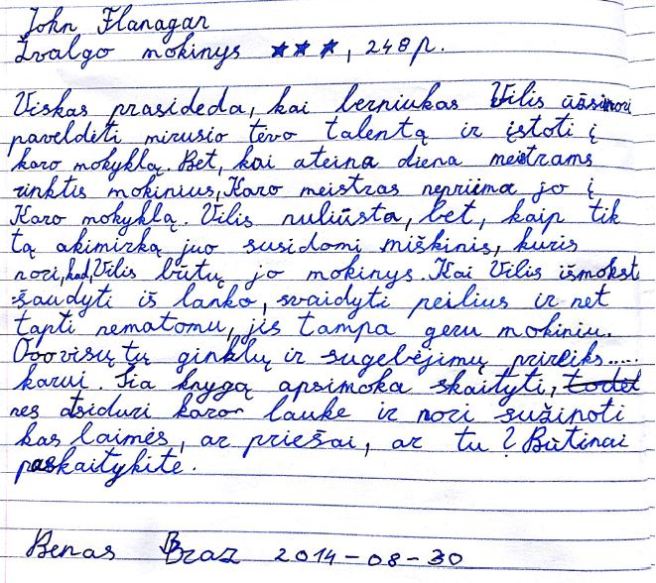 John Flanagan
Žvalgo mokinys ★★★, 248p.
Viskas prasideda, kai berniukas Vilis užsinori
paveldėti mirusio tėvo talentą ir įstoti į
karo mokyklą. Bet, kai ateina diena meistrams
rinktis mokinius, Karo meistras nepriima jo į
Karo mokyklą. Vilis nuliūsta, bet, kaip tik
tą akimirką juo susidomi miškinis, kuris
nori, kad, Vilis būtų jo mokinys. Kai Vilis išmokst
šaudyti iš lanko, svaidyti peilius ir net
tapti nematomu, jis tampa geru mokiniu.
Ooo visų tų ginklų ir sugebėjimų prireiks.....
karui. Šia knygą apsimoka skaityti, todėl
nes atsiduri karo lauke ir nori sužinoti
kas laimės, ar priešai, ar tu? Būtinai
paskaitykite.
Benas Braz 2014-08-30